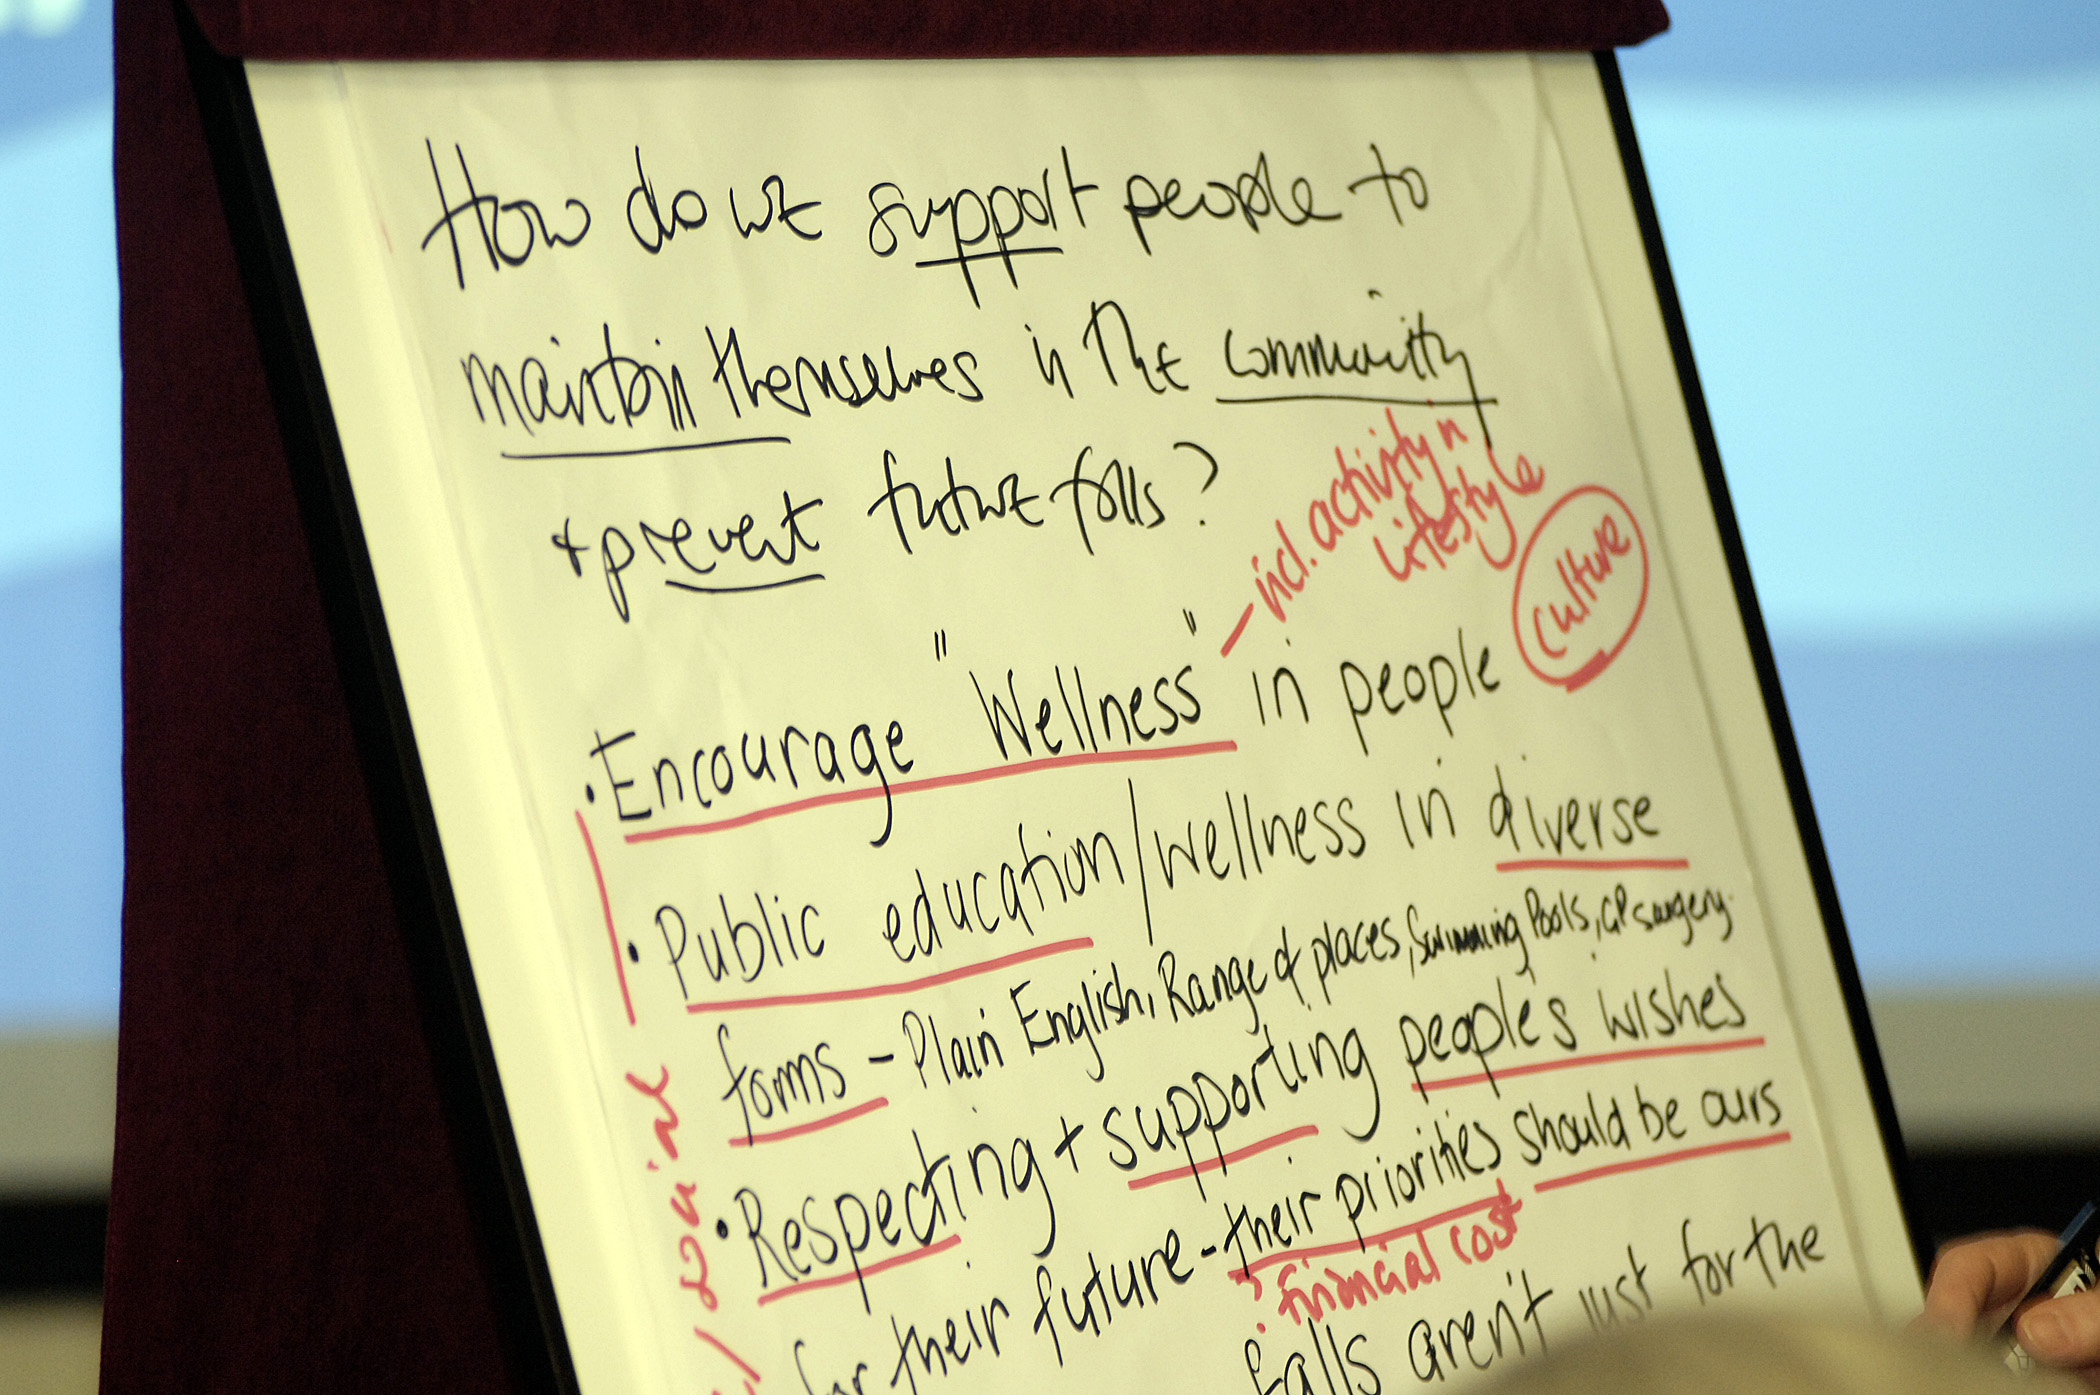 How do we support people to
maintain themselves in the community
+ prevent future falls?
– incl. activity in
lifestyle
culture
• Encourage "Wellness" in people
• Public education/wellness in diverse
forms – Plain English, Range of places, Swimming Pools, GP surgery.
• Respecting + supporting people's wishes
for their future – their priorities should be ours
? financial cost
falls aren't just for the
/ social